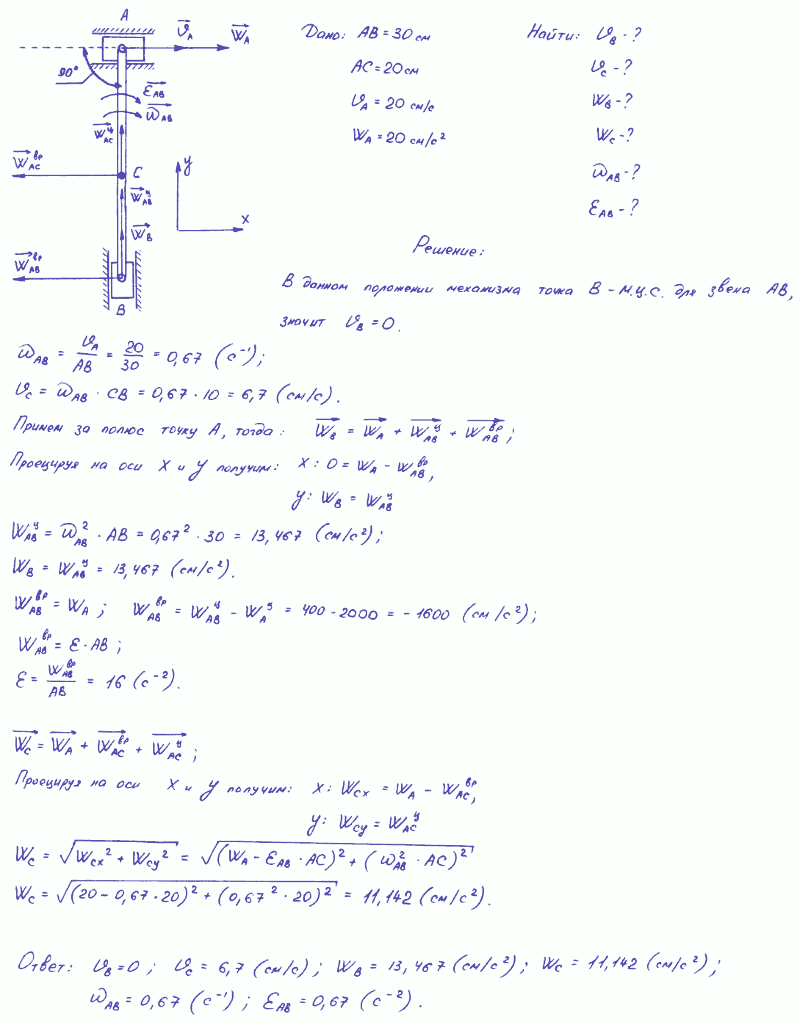 A
v̄A
W̄A
90°
ε̄AB
ω̄AB
W̄ACц
W̄ACвр
C
W̄ABц
W̄B
W̄ABвр
B
y
x
Дано: AB = 30 см
AC = 20 см
vA = 20 см/с
WA = 20 см/с²
Найти: vB - ?
vC - ?
WB - ?
WC - ?
ω̄AB - ?
εAB - ?
Решение:
В данном положении механизма точка В – м.ц.с. для звена АВ,
значит vB = 0.
ω̄AB = vA/AB = 20/30 = 0,67 (с⁻¹);
vC = ω̄AB · CB = 0,67 · 10 = 6,7 (см/с).
Примем за полюс точку А, тогда: W̄B = W̄A + W̄ABц + W̄ABвр;
Проецируя на оси X и У получим: x: 0 = WA – WABвр,
y: WB = WABц
WABц = ω̄AB² · AB = 0,67² · 30 = 13,467 (см/с²);
WB = WABц = 13,467 (см/с²).
WABвр = WA; WABвр = WABц – WAц = 400 – 2000 = – 1600 (см/с²);
WABвр = ε · AB;
ε = WABвр/AB = 16 (с⁻²).
W̄C = W̄A + W̄ACвр + W̄ACц;
Проецируя на оси X и У получим: x: WCx = WA – WACвр,
y: WCy = WACц
WC = √(WCx² + WCy²) = √((WA – εAB · AC)² + (ωAB² · AC)²)
WC = √((20 – 0,67 · 20)² + (0,67² · 20)²) = 11,142 (см/с²).
Ответ: vB = 0; vC = 6,7 (см/с); WB = 13,467 (см/с²); WC = 11,142 (см/с²);
ω̄AB = 0,67 (с⁻¹); εAB = 0,67 (с⁻²).